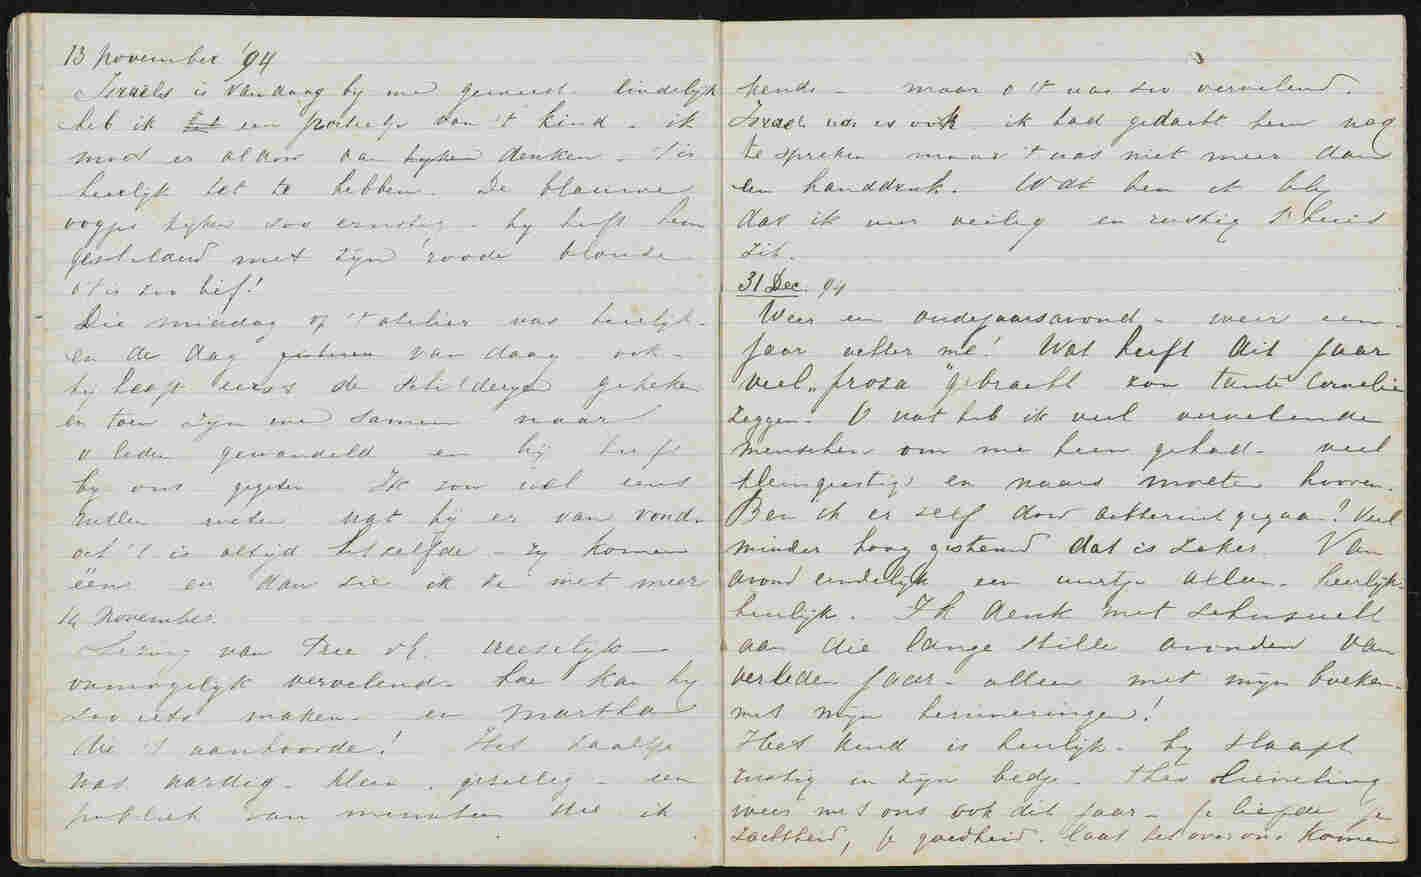 13 November '94
Israels is vandaag by me geweest. Eindelyk
heb ik het een portretje van 't kind - ik
moet er aldoor aan kyken denken - 't is
heerlijk het te hebben. De blauwe
oogjes kyken zoo ernstig - hy heeft hem
geschilderd met zyn roode blouse
o 't is zoo lief!
Die middag op 't atelier was heerlyk -
en de dag gisteren van daag ook -
hy heeft eerst de schilderyen gekeken
en toen zyn we samen naar
v Leden gewandeld en hij heeft
by ons gegeten. Ik zou wel eens
willen weten wat hij er van vond.
ach 't is altijd hetzelfde - zy komen
ééns en dan zie ik ze niet meer
14 November.
Lezing van Free v E. vreeselyk -
onmogelyk vervelend - hoe kan hy
zoo iets maken - en Martha
die 't aanhoorde! Het zaaltje
was aardig - klein, gezellig - een
publiek van menschen die ik
kende - maar o 't was zoo vervelend.
Israels was er ook - ik had gedacht hem nog
te spreken maar 't was niet meer dan
een handdruk. Wat ben ik bly
dat ik weer veilig en rustig t'huis
zit.
31 Dec. 94
Weer een oudejaarsavond - weer een
jaar achter me! Wat heeft dit jaar
veel "proza" gebracht zou tante Cornelie
zeggen - O wat heb ik veel vervelende
menschen om me heen gehad - veel
kleingeestigs en naars moeten hooren.
Ben ik er zelf door achteruit gegaan? Veel
minder hoog gestemd dat is zeker. Van
avond eindelyk een uurtje alleen - heerlyk -
heerlyk. Ik denk met sehnsucht
aan die lange stille avonden van
verleden jaar - alleen met mijn boeken -
met mijn herinneringen!
Het kind is heerlyk - hy slaapt
rustig in zijn bedje - Theo lieveling
wees met ons ook dit jaar - je liefde je
zachtheid, je goedheid. laat het over ons komen